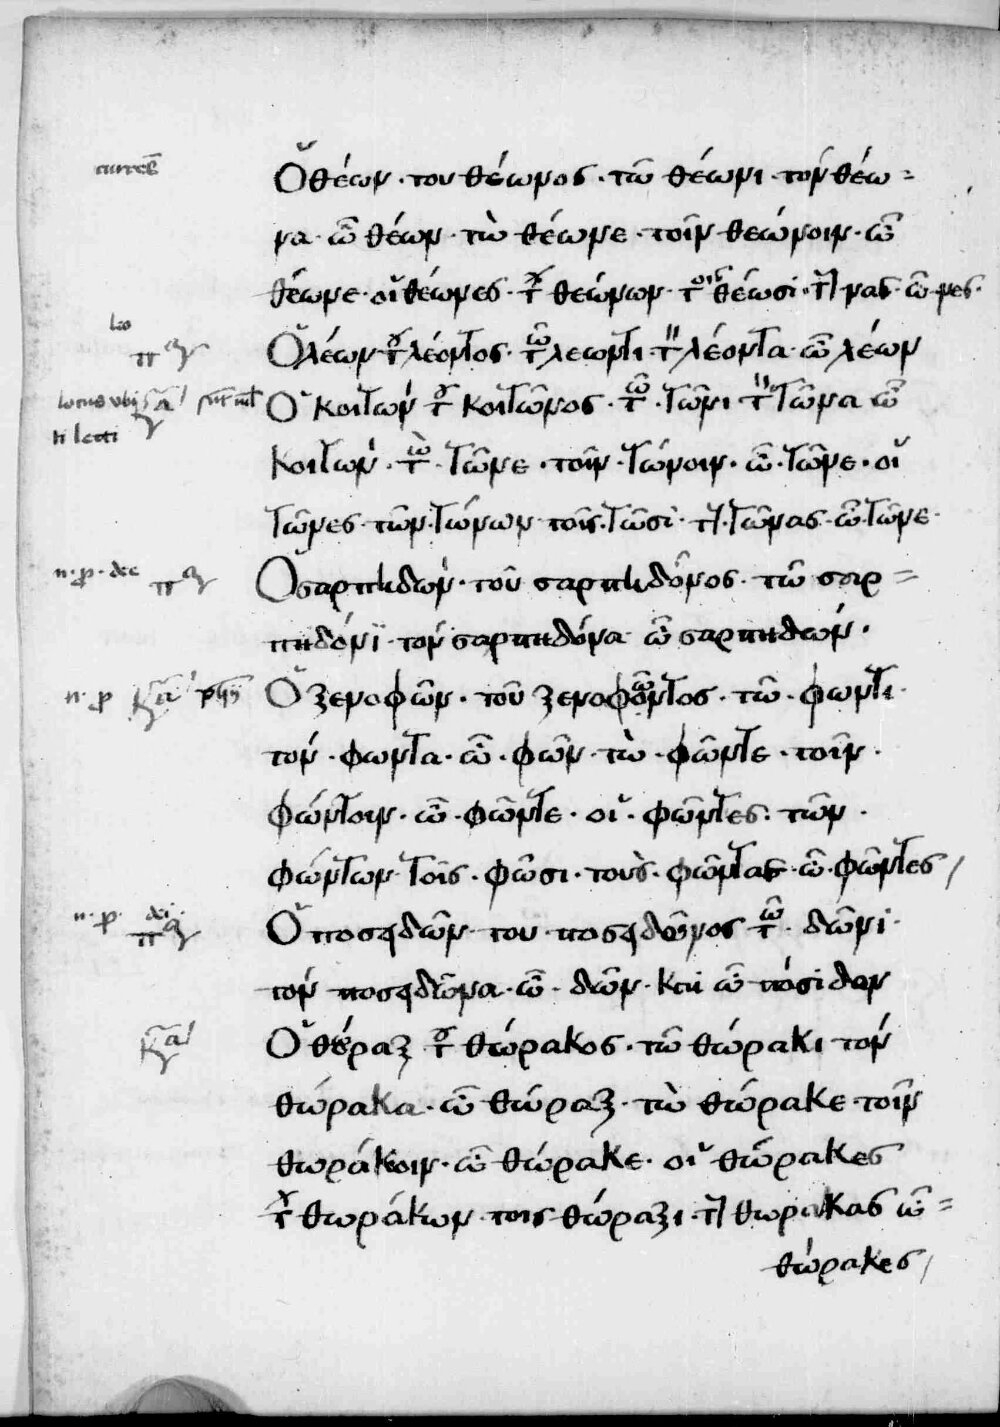 Ὁ θέων · του θέωνος · τῶ θέωνι · τὸν θέω=
να · ὦ θέων · τὼ θέωνε · τοῖν θεώνοιν · ὦ
θέωνε · οἱ θέωνες · τ̃ θεώνων · τοῖς θέωσι · τ̃ νας · ὦ νες ·
leo
Ὁ λέων τ̃ λέοντος · τῶ λεωντι · τ̃ λέοντα · ὦ λέων
locus ubi sunt mul
ti lecti
Ὁ κοιτών τ̃ κοιτῶνος · τῶ · τῶνι τ̃ τῶνα ὦ
κοιτών · τὼ · τῶνε · τοῖν · τώνοιν · ὦ · τῶνε · οἱ
τῶνες · τῶν · τώνων · τοῖς · τῶσι · τ̃ · τῶνας · ὦ · τῶνε ·
n · p · dee
Ὁ σαρπηδών · τοῦ σαρπηδόνος · τῶ σαρ=
πηδόνϊ · τόν σαρπηδόνα · ὦ σαρπηδών ·
n · p
Ὁ ξενοφῶν · τοῦ ξενοφῶντος · τῶ · φωντι ·
τόν · φωντα · ὦ · φῶν · τὼ · φῶντε · τοῖν ·
φώντοιν · ὦ · φῶντε · οἱ · φῶντες · τῶν ·
φώντων τοῖς · φῶσι · τοὺς · φῶντας · ὦ · φῶντες /
n · p · dei ·
Ὁ ποσειδῶν · του ποσειδῶνος τῶ · δῶνι ·
τόν ποσειδῶνα · ὦ · δῶν · και ὦ πόσιδον
Ὁ θώραξ τ̃ θώρακος · τῶ θώρακι τόν
θώρακα · ὦ θώραξ · τὼ θώρακε · τοῖν
θωράκοιν · ὦ θώρακε · οἱ θώρακες
τ̃ θωράκων · τοις θώραξι · τ̃ θωρακας ὦ=
θώρακες /